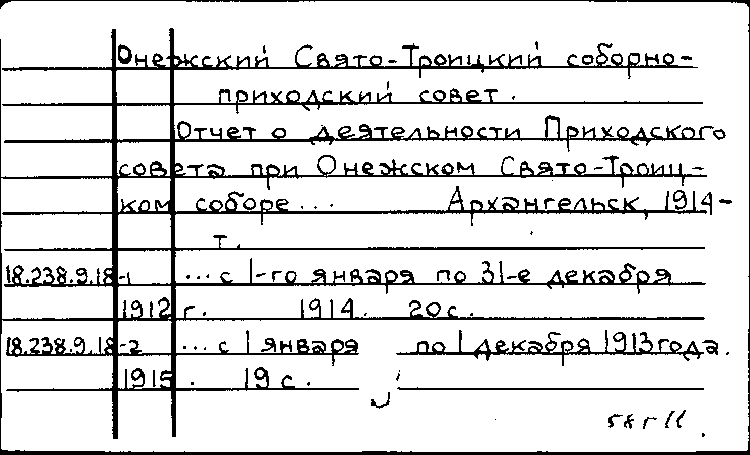 Онежский Свято-Троицкий соборно-
приходский совет.
Отчет о деятельности Приходского
совета при Онежском Свято-Троиц-
ком соборе... Архангельск, 1914-
т.
18.238.9.18-1 ...с 1-го января по 31-е декабря
1912 г. 1914. 20с.
18.238.9.18-2 ...с 1 января по 1 декабря 1913 года.
1915. 19 с.